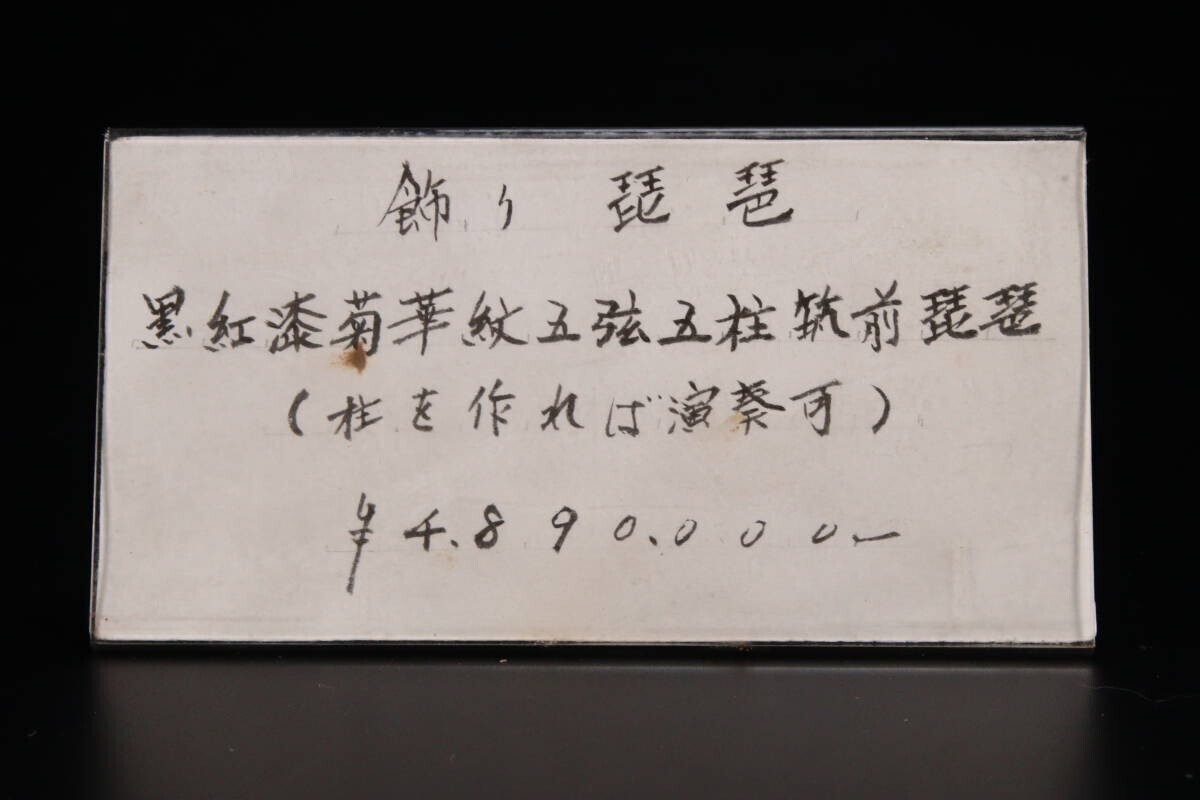 飾り琵琶
黒紅漆菊華紋五弦五柱筑前琵琶
(柱を作れば演奏可)
¥4.890.000.-